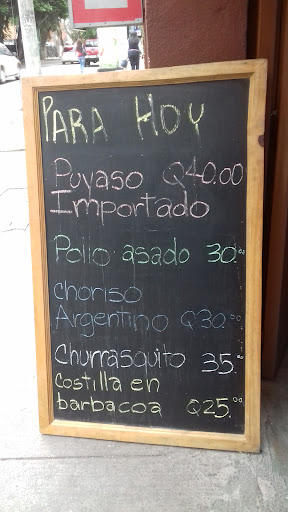 PARA HOY
Puyaso Q40.00
Importado
Pollo asado 30.00
Choriso
Argentino Q30.00
Churrasquito 35.00
Costilla en
barbacoa Q25.00